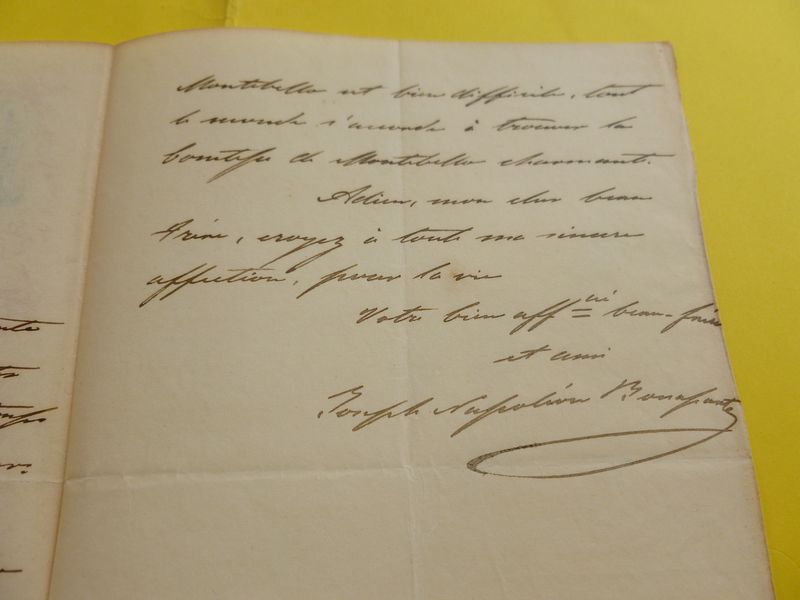 Montebello est bien difficile, tout
le monde s'accorde à trouver la
Comtesse de Montebello charmant.
Adieu, mon cher beau
Frère, croyez à toute ma sincere
affection, pour la vie
Votre bien aff né beau-frère
et ami
Joseph Napoléon Bonaparte